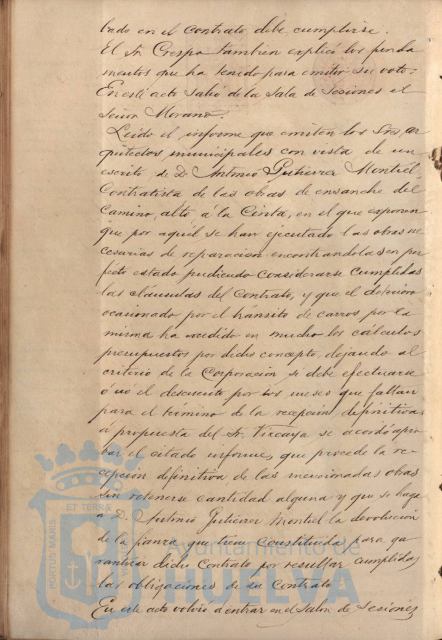 bado en el contrato debe cumplirse.
El Sr. Crespo tambien explicó los funda
mentos que ha tenido para emitir su voto.
En este acto salió de la Sala de Sesiones el
Señor Morano.
Leido el informe que emiten los Sres. ar
quitectos municipales con vista de un
escrito de D. Antonio Gutierrez Montiel,
Contratista de las obras de ensanche del
Camino alto á la Cinta, en el que exponen
que por aquél se han ejecutado las obras ne
cesarias de reparacion encontrandolas en per
fecto estado pudiendo considerarse cumplidas
las clausulas del Contrato, y que el deterioro
ocasionado por el tránsito de carros por la
misma ha excedido en mucho los cálculos
presupuestos por dicho concepto, dejando al
criterio de la Corporacion si debe efectuarse
ó nó el descuento por los meses que faltan
para el término de la recepcion definitiva
á propuesta del Sr. Vizcaya se acordó apro
bar el citado informe, que procede la re
cepcion definitiva de las mencionadas obras
sin retenerse cantidad alguna y que se haga
a D. Antonio Gutierrez Montiel la devolución
de la fianza que tiene constituida para ga
rantizar dicho Contrato por resultar cumplidas
las obligaciones de su Contrato.
En este acto volvió a entrar en el Salon de Sesiones
PORTUS MARIS ET TERRAE
Ayuntamiento de
HUELVA